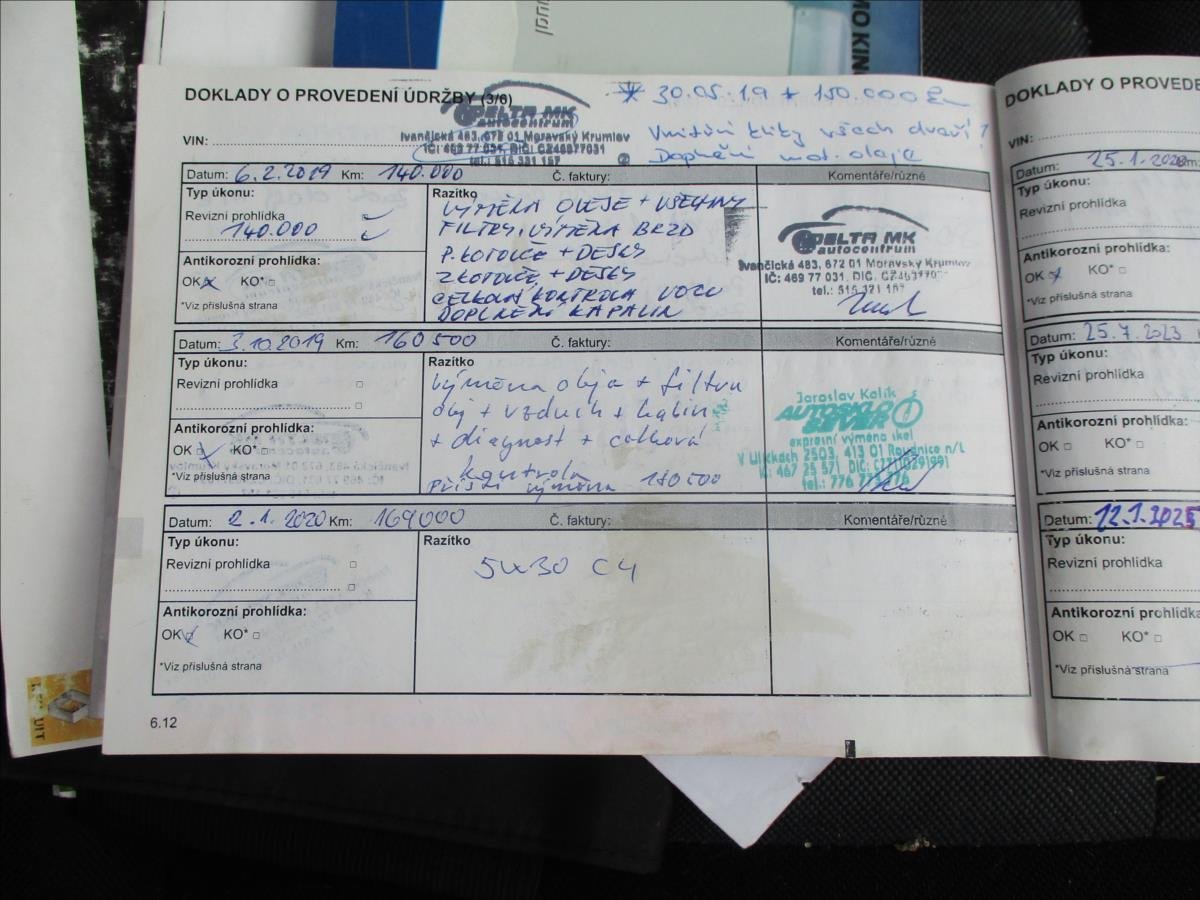 DOKLADY O PROVEDENÍ ÚDRŽBY (3/6)
DELTA MK
autocentrum
Ivančická 483, 672 01 Moravský Krumlov
IČ: 469 77 031, DIČ: CZ46977031
tel.: 515 321 157
* 30.05.19 * 150.000 Km
Vnitřní kliky všech dveří!
Doplnění mot. oleje
VIN:
Datum: 6.2.2019 Km: 140.000 Č. faktury: Komentáře/různé
Typ úkonu:
Revizní prohlídka
140.000
Antikorozní prohlídka:
OK KO*
*Viz příslušná strana
Razítko
VÝMĚNA OLEJE + VŠECHNY
FILTRY, VÝMĚNA BRZD
P. KOTOUČE + DESKY
Z KOTOUČE + DESKY
CELKOVÁ KONTROLA VOZU
DOPLNĚNÍ KAPALIN
DELTA MK
autocentrum
Ivančická 483, 672 01 Moravský Krumlov
IČ: 469 77 031, DIČ. CZ46977031
tel.: 515 321 157
Datum: 3.10.2019 Km: 160500 Č. faktury: Komentáře/různé
Typ úkonu:
Revizní prohlídka
Antikorozní prohlídka:
OK KO*
*Viz příslušná strana
Razítko
Výměna oleja + filtru
olej + vzduch + kabin
+ diagnost + celková
kontrola
Příští výměna 180500
Jaroslav Kolík
AUTOSKLO
expresní výměna skel
V Uličkách 2503, 413 01 Roudnice n/L
tel.: 776
Datum: 2.1.2020 Km: 164000 Č. faktury: Komentáře/různé
Typ úkonu:
Revizní prohlídka
Antikorozní prohlídka:
OK KO*
*Viz příslušná strana
Razítko
5W30 C4
6.12
DOKLADY O PROVEDENÍ
VIN:
Datum: 25.1.2020
Typ úkonu:
Revizní prohlídka
Antikorozní prohlídka:
OK KO*
*Viz příslušná strana
Datum: 25.7.2023
Typ úkonu:
Revizní prohlídka
Antikorozní prohlídka:
OK KO*
*Viz příslušná strana
Datum: 12.1.2025
Typ úkonu:
Revizní prohlídka
Antikorozní prohlídka:
OK KO*
*Viz příslušná strana